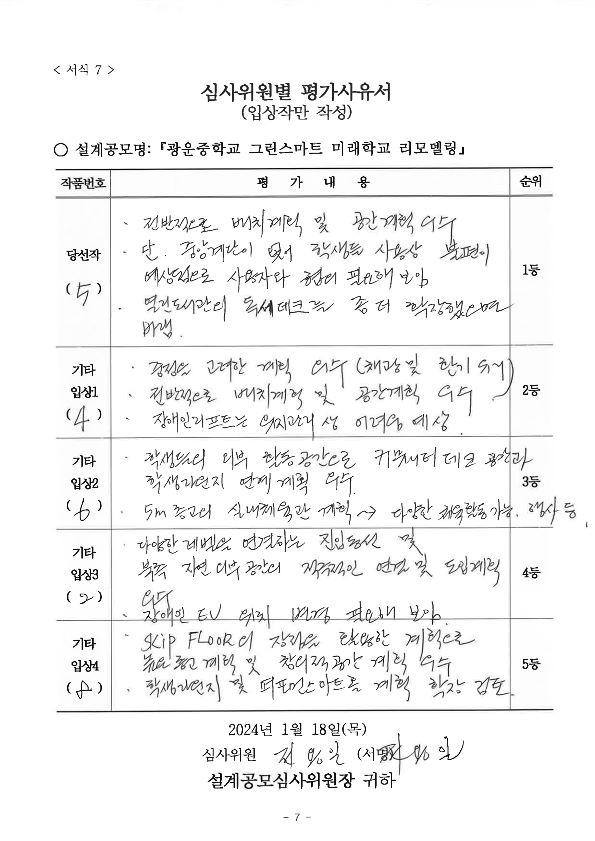 < 서식 7 >
심사위원별 평가사유서
(입상작만 작성)
○ 설계공모명: 『광운중학교 그린스마트 미래학교 리모델링』
작품번호 평 가 내 용 순위
당선작 (5) 1등
· 전반적으로 배치계획 및 공간계획 우수
· 단. 중앙계단이 없어 학생들 사용상 불편이
예상됨으로 사용자와 협의 필요해 보임
· 열린도서관의 독서데크는 좀 더 확장했으면
바램.
기타 입상1 (4) 2등
· 중정을 고려한 계획 우수 (채광 및 환기 유리)
· 전반적으로 배치계획 및 공간계획 우수.
· 장애인리프트는 유지관리상 어려움 예상.
기타 입상2 (6) 3등
· 학생들의 외부 활동공간으로 커뮤니티 데크 공간과
학생라운지 연계 계획 우수.
· 5m 층고의 실내체육관 계획 → 다양한 체육활동가능. 행사 등
기타 입상3 (2) 4등
· 다양한 레벨을 연결하는 진입동선 및
북측 자연 외부공간의 적극적인 연결 및 도입계획
우수
· 장애인 EV 위치 변경 필요해 보임.
기타 입상4 (8) 5등
· SKIP FLOOR의 장점을 활용한 계획으로
층고 계획 및 창의적 공간 계획 우수
· 학생라운지 및 퍼포먼스마트를 계획 확장 검토.
2024년 1월 18일(목)
심사위원 (서명)
설계공모심사위원장 귀하
- 7 -